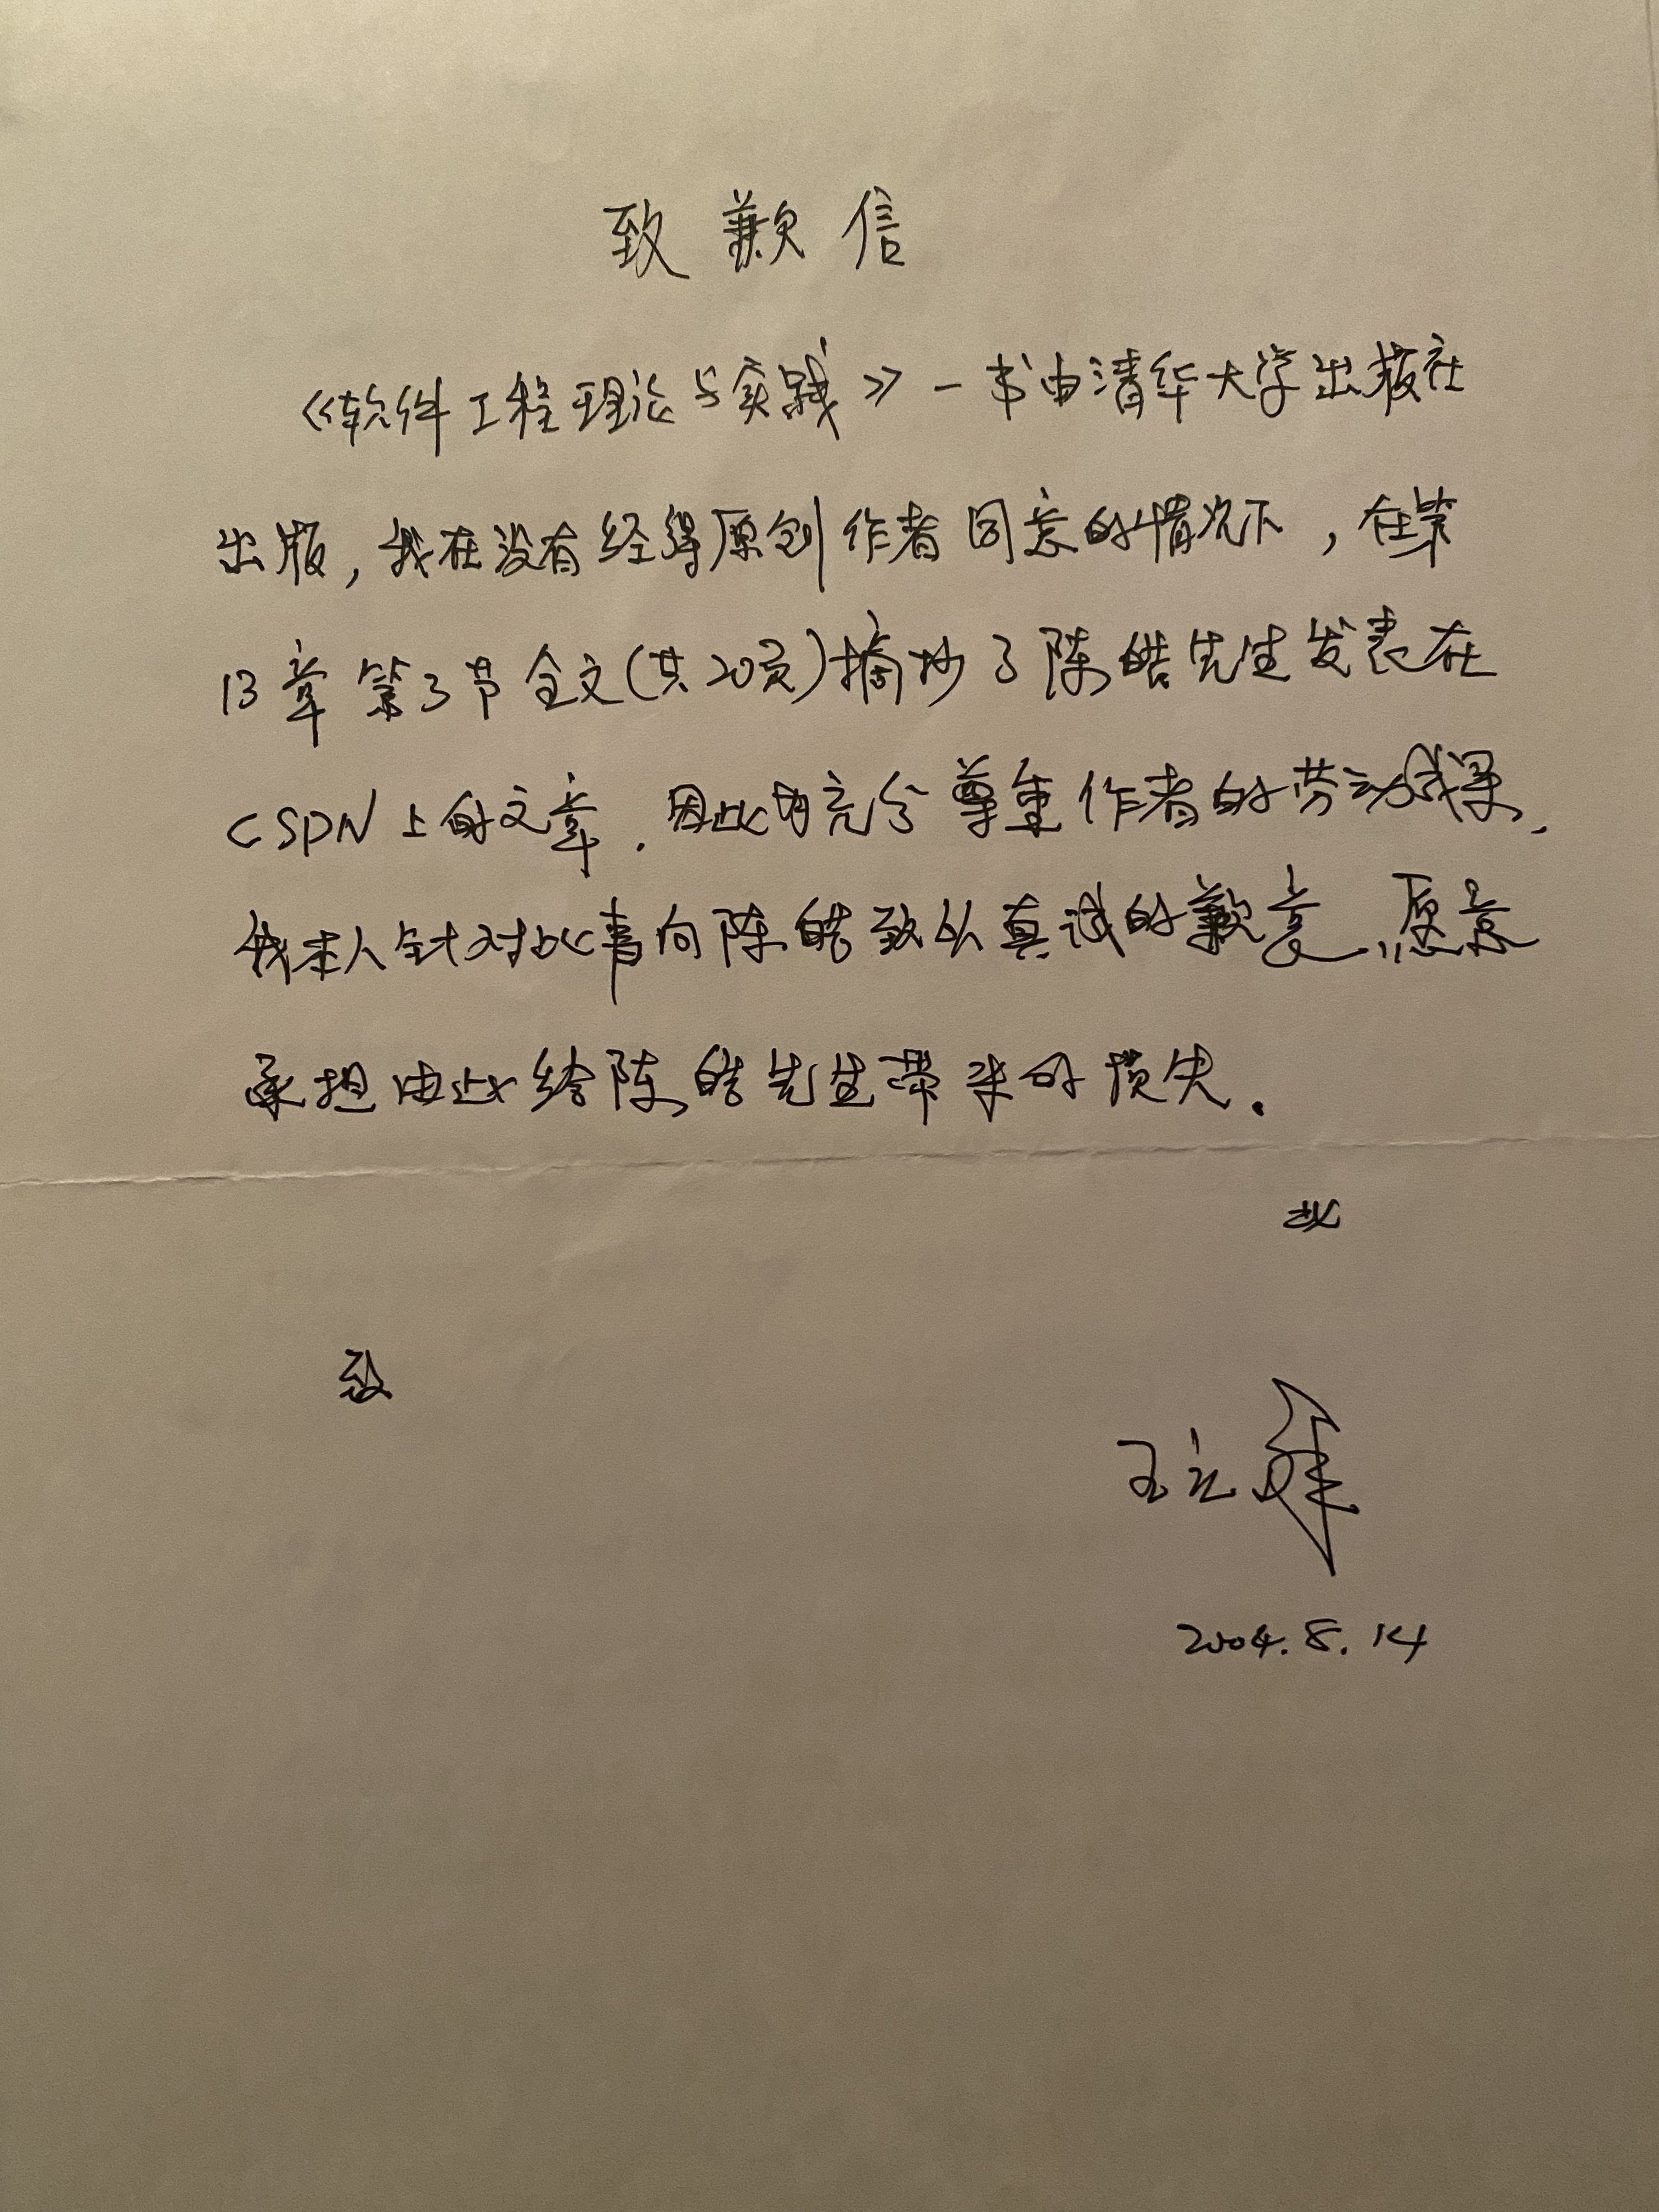 致歉信
《软件工程理论与实践》一书由清华大学出版社
出版，我在没有经得原创作者同意的情况下，在第
13章第3节全文(共20页)摘抄了陈皓先生发表在
CSDN上的文章．因此为充分尊重作者的劳动成果，
我本人针对此事向陈皓致以真诚的歉意，愿意
承担由此给陈皓先生带来的损失．
此
致
王立
2004.8.14